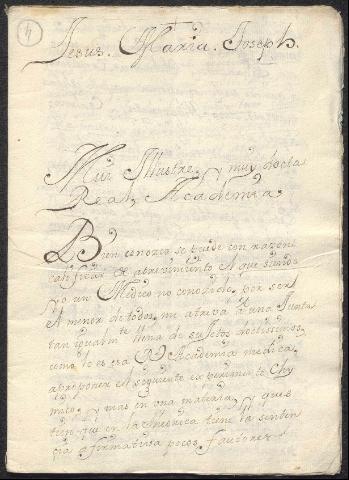 4
Jesus. Maria. Joseph.
Mui Illustre, y muy docta
Real, Academia.
Bien conozco se puede con razon
calificar de atrevimiento el que siendo
yo un Medico no conozido, por ser
el menor de todos, me atreva a una Junta
tan igualmte llena de sujetos doctissimos,
como lo es esa Rl Academia medica,
a proponer el siguiente experimento Chy
mico, y mas en una materia, que
en la America tiene la senten
cia afirmativa pocos fautores